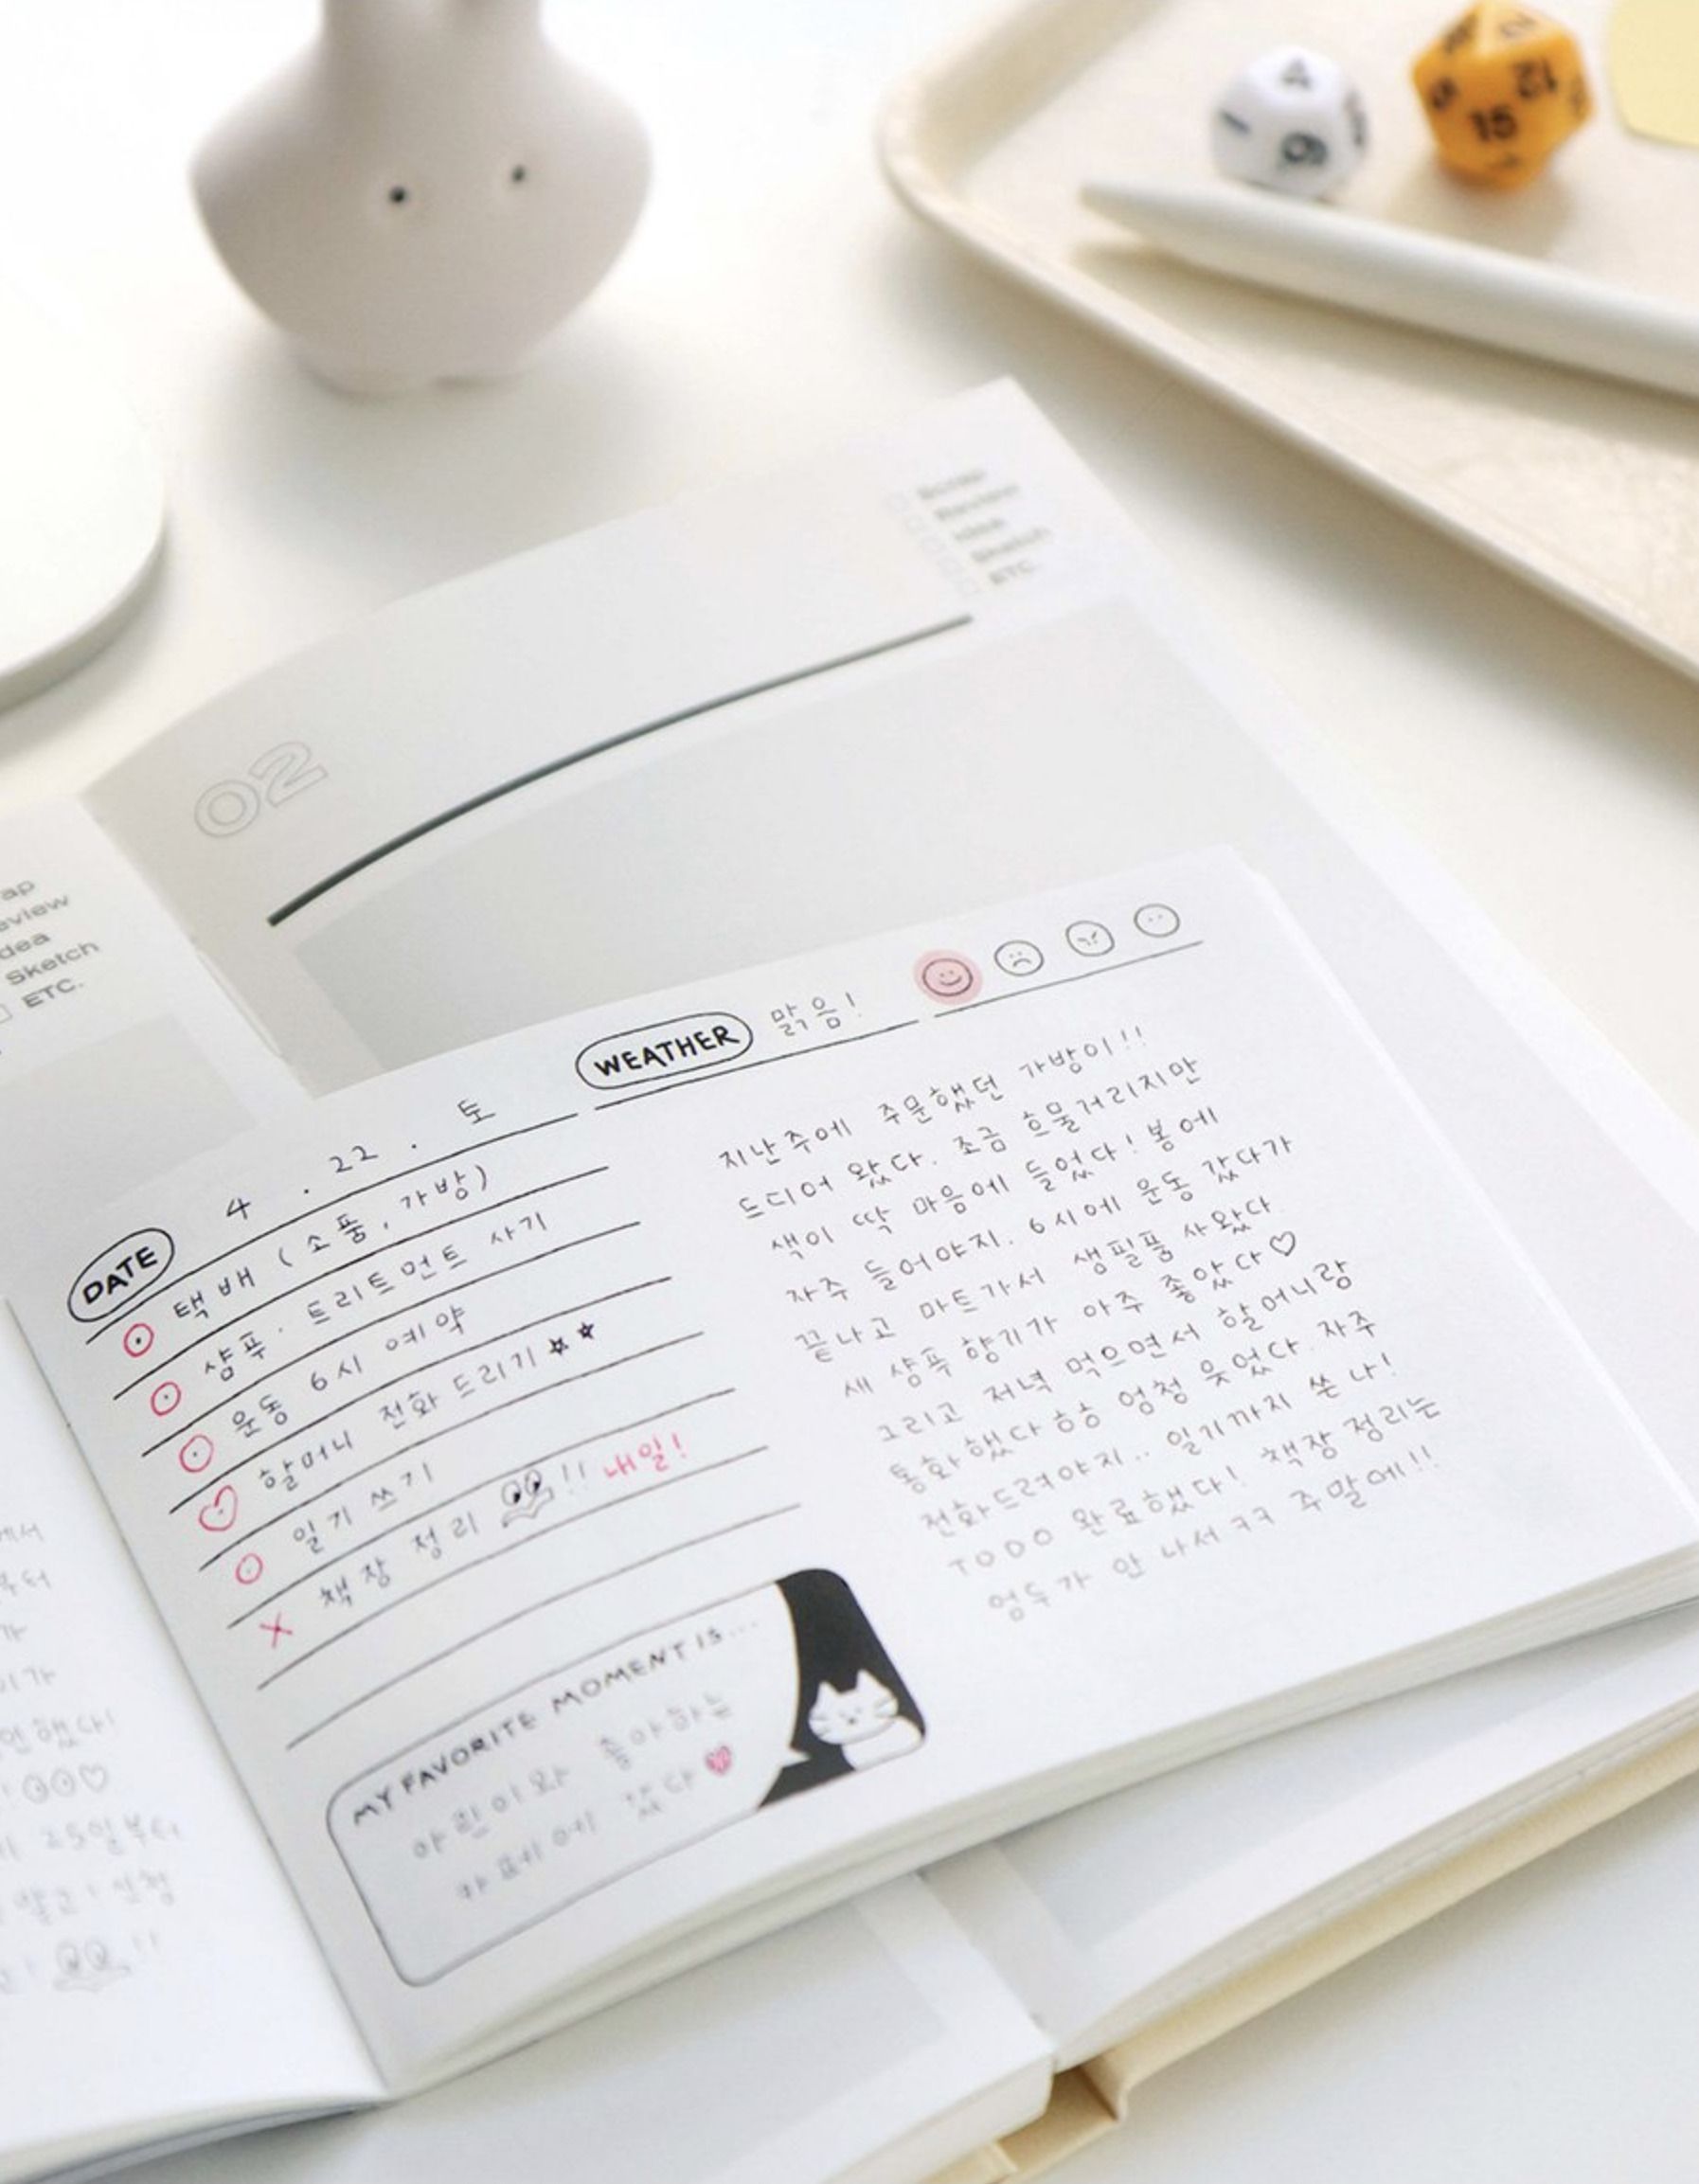 4
12
15
6
02
ETC.
eview
Sketch
ETC.
DATE 4 . 22 . 토 WEATHER 맑음!
택배 (소품, 가방)
샴푸 · 트리트먼트 사기
운동 6시 예약
할머니 전화 드리기
일기 쓰기
책장 정리 !! 내일!
MY FAVORITE MOMENT IS...
아린이와 좋아하는
카페에 갔다
지난주에 주문했던 가방이!!
드디어 왔다. 조금 흐물거리지만
색이 딱 마음에 들었다! 봄에
자주 들어야지. 6시에 운동 갔다가
끝나고 마트가서 생필품 사왔다
새 샴푸 향기가 아주 좋았다♡
그리고 저녁 먹으면서 할머니랑
통화했다 하하 엄청 웃었다. 자주
전화드려야지.. 일기까지 쓴 나!
TODO 완료했다! 책장 정리는
엄두가 안 나서 ㅋㅋ 주말에!!
25일부터